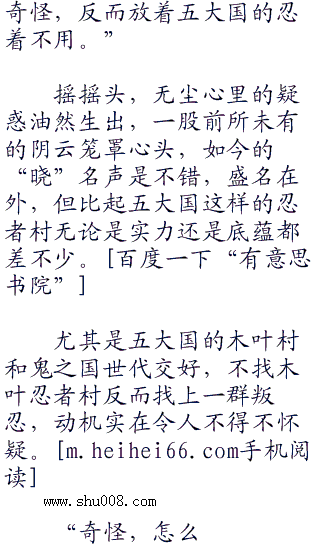 奇怪，反而放着五大国的忍
着不用。”
摇摇头，无尘心里的疑
惑油然生出，一股前所未有
的阴云笼罩心头，如今的
“晓”名声是不错，盛名在
外，但比起五大国这样的忍
者村无论是实力还是底蕴都
差不少。[百度一下“有意思
书院”]
尤其是五大国的木叶村
和鬼之国世代交好，不找木
叶忍者村反而找上一群叛
忍，动机实在令人不得不怀
疑。[m.heihei66.com手机阅
读]
www.shu008.com
“奇怪，怎么